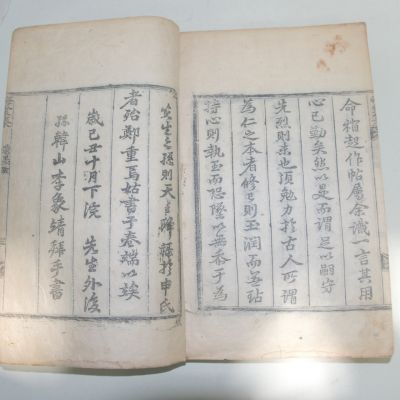 命起作帖屬余識一言其用
心已勤矣然以是而謂足以嗣守
先烈則未也須勉力於古人所謂
為仁之本者修己則玉潤而無玷
持心則執玉而恐墜以無忝于為
先生之孫則天於申氏
者殆鄭重焉姑書于卷端以俟
歲己丑十月下浣 先生外後
孫韓山李象靖拜手書